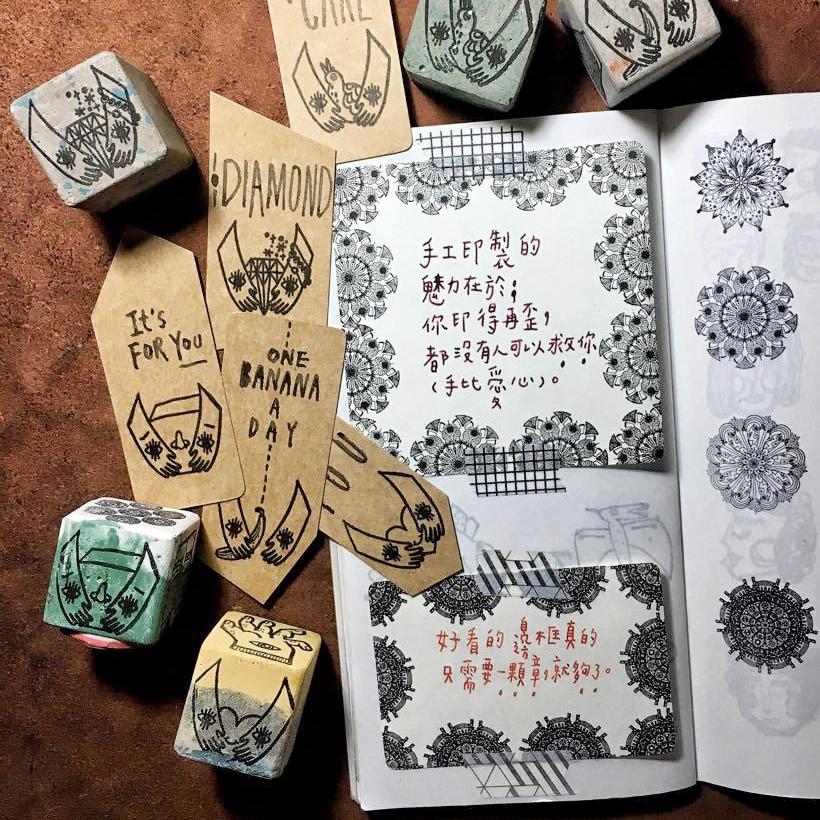 CARE
DIAMOND
It's
FOR YOU
ONE
BANANA
A
DAY
手工印製的
魅力在於；
你印得再歪，
都沒有人可以救你
（手比愛心）。
好看的邊框真的
只需要一顆章，就夠了。